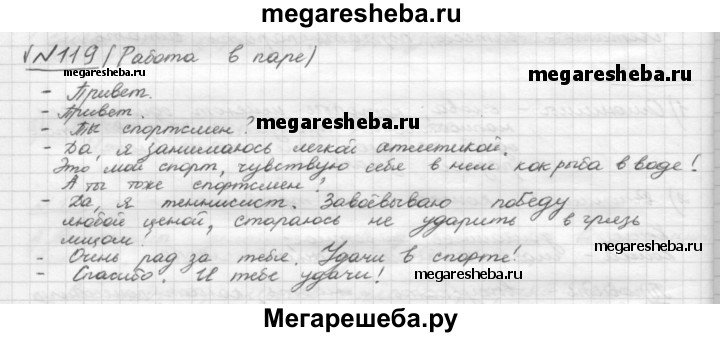 megaresheba.ru
√ №119 (Работа в паре)
megaresheba.ru
- Привет.
- Привет.
- Ты спортсмен?
megaresheba.ru
- Да, я занимаюсь легкой атлетикой.
Это мой спорт, чувствую себя в нем как рыба в воде!
А ты тоже спортсмен?
- Да, я теннисист. Завоёвываю победу
любой ценой, стараюсь не ударить в грязь
лицом!
megaresheba.ru
- Очень рад за тебя. Удачи в спорте!
- Спасибо. И тебе удачи!
megaresheba.ru
Мегарешеба.ру